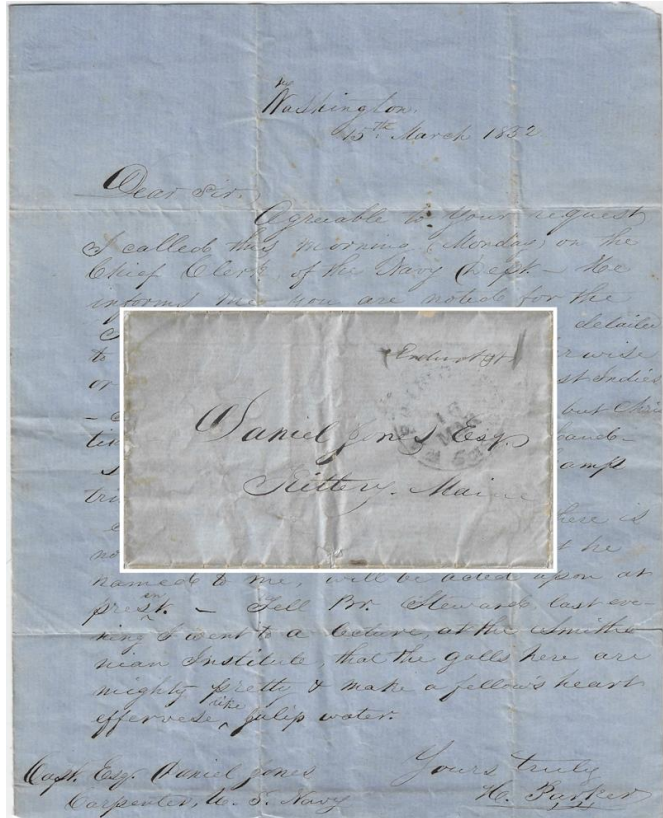 Washington
15th March 1852
Dear Sir.
Agreable to your request
I called this morning (Monday) on the
Chief Clerk of the Navy Dept - He
informs me you are noted for the
detailed
to
wise
or
st Indies
but
ti
hand-
amps
tru
here is
no
t he
named to me, will be acted upon at
present. - Tell Br. Steward last eve-
ning I went to a lecture, at the Smithso-
nian Institute, that the galls here are
mighty pretty & make a fellow's heart
effervese like julip water.
Yours truly
H. Parker
Capt. Esq. Daniel Jones
Carpenter, U. S. Navy
Daniel Jones Esq.
Kittery. Maine
18
MAR